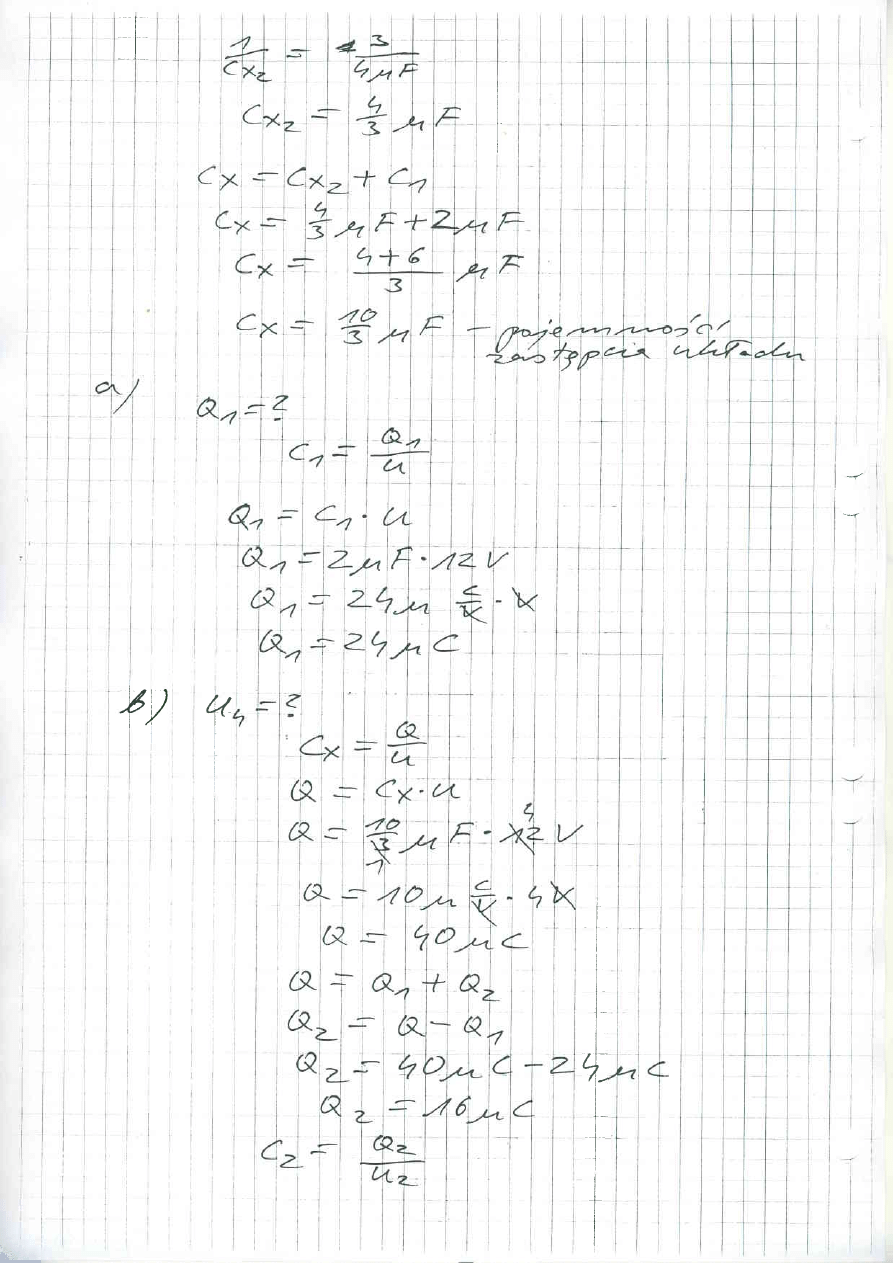 1/Cx₂ = 3/4μF
Cx₂ = 4/3 μF
Cx = Cx₂ + C₁
Cx = 4/3 μF + 2μF
Cx = 4+6/3 μF
Cx = 10/3 μF – pojemność
zastępcia układu
a)
Q₁ = ?
C₁ = Q₁/U
Q₁ = C₁ · U
Q₁ = 2μF · 12V
Q₁ = 24μ C/V · V
Q₁ = 24μC
b) U₄ = ?
Cx = Q/U
Q = Cx · U
4
Q = 10/3 μF · 12 V
1
Q = 10μ C/V · 4V
Q = 40μC
Q = Q₁ + Q₂
Q₂ = Q – Q₁
Q₂ = 40μC – 24μC
Q₂ = 16μC
C₂ = Q₂/U₂